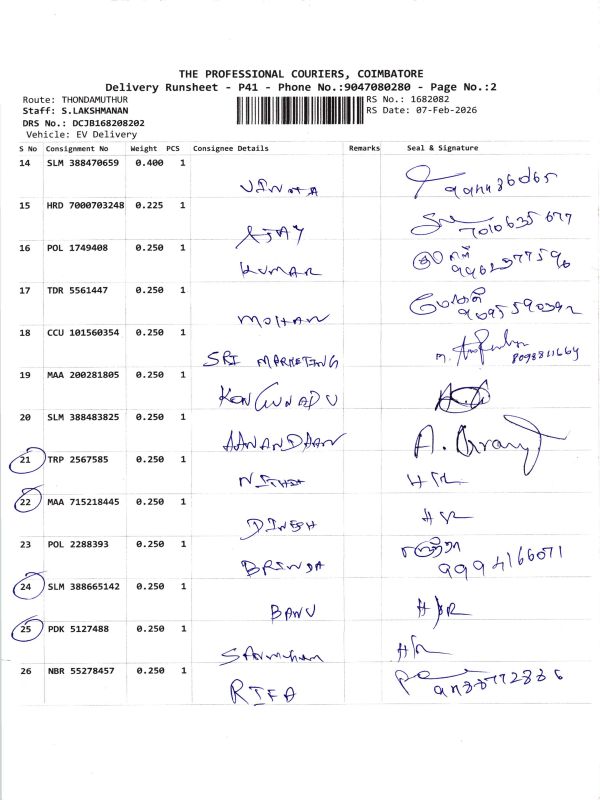 THE PROFESSIONAL COURIERS, COIMBATORE
Delivery Runsheet - P41 - Phone No.:9047080280 - Page No.:2
Route: THONDAMUTHUR RS No.: 1682082
Staff: S.LAKSHMANAN RS Date: 07-Feb-2026
DRS No.: DCJB168208202
Vehicle: EV Delivery
S No Consignment No Weight PCS Consignee Details Remarks Seal & Signature
14 SLM 388470659 0.400 1
15 HRD 7000703248 0.225 1
AJAY 7010635677
16 POL 1749408 0.250 1
KUMAR
17 TDR 5561447 0.250 1
MOHAN
18 CCU 101560354 0.250 1
SRI MARKETING
19 MAA 200281805 0.250 1
KONGUNADU
20 SLM 388483825 0.250 1
AANANDAAN
21 TRP 2567585 0.250 1
NITHIA
22 MAA 715218445 0.250 1
DINESH
23 POL 2288393 0.250 1
BRINDA 9994166071
24 SLM 388665142 0.250 1
BANU
25 PDK 5127488 0.250 1
26 NBR 55278457 0.250 1
RIFA